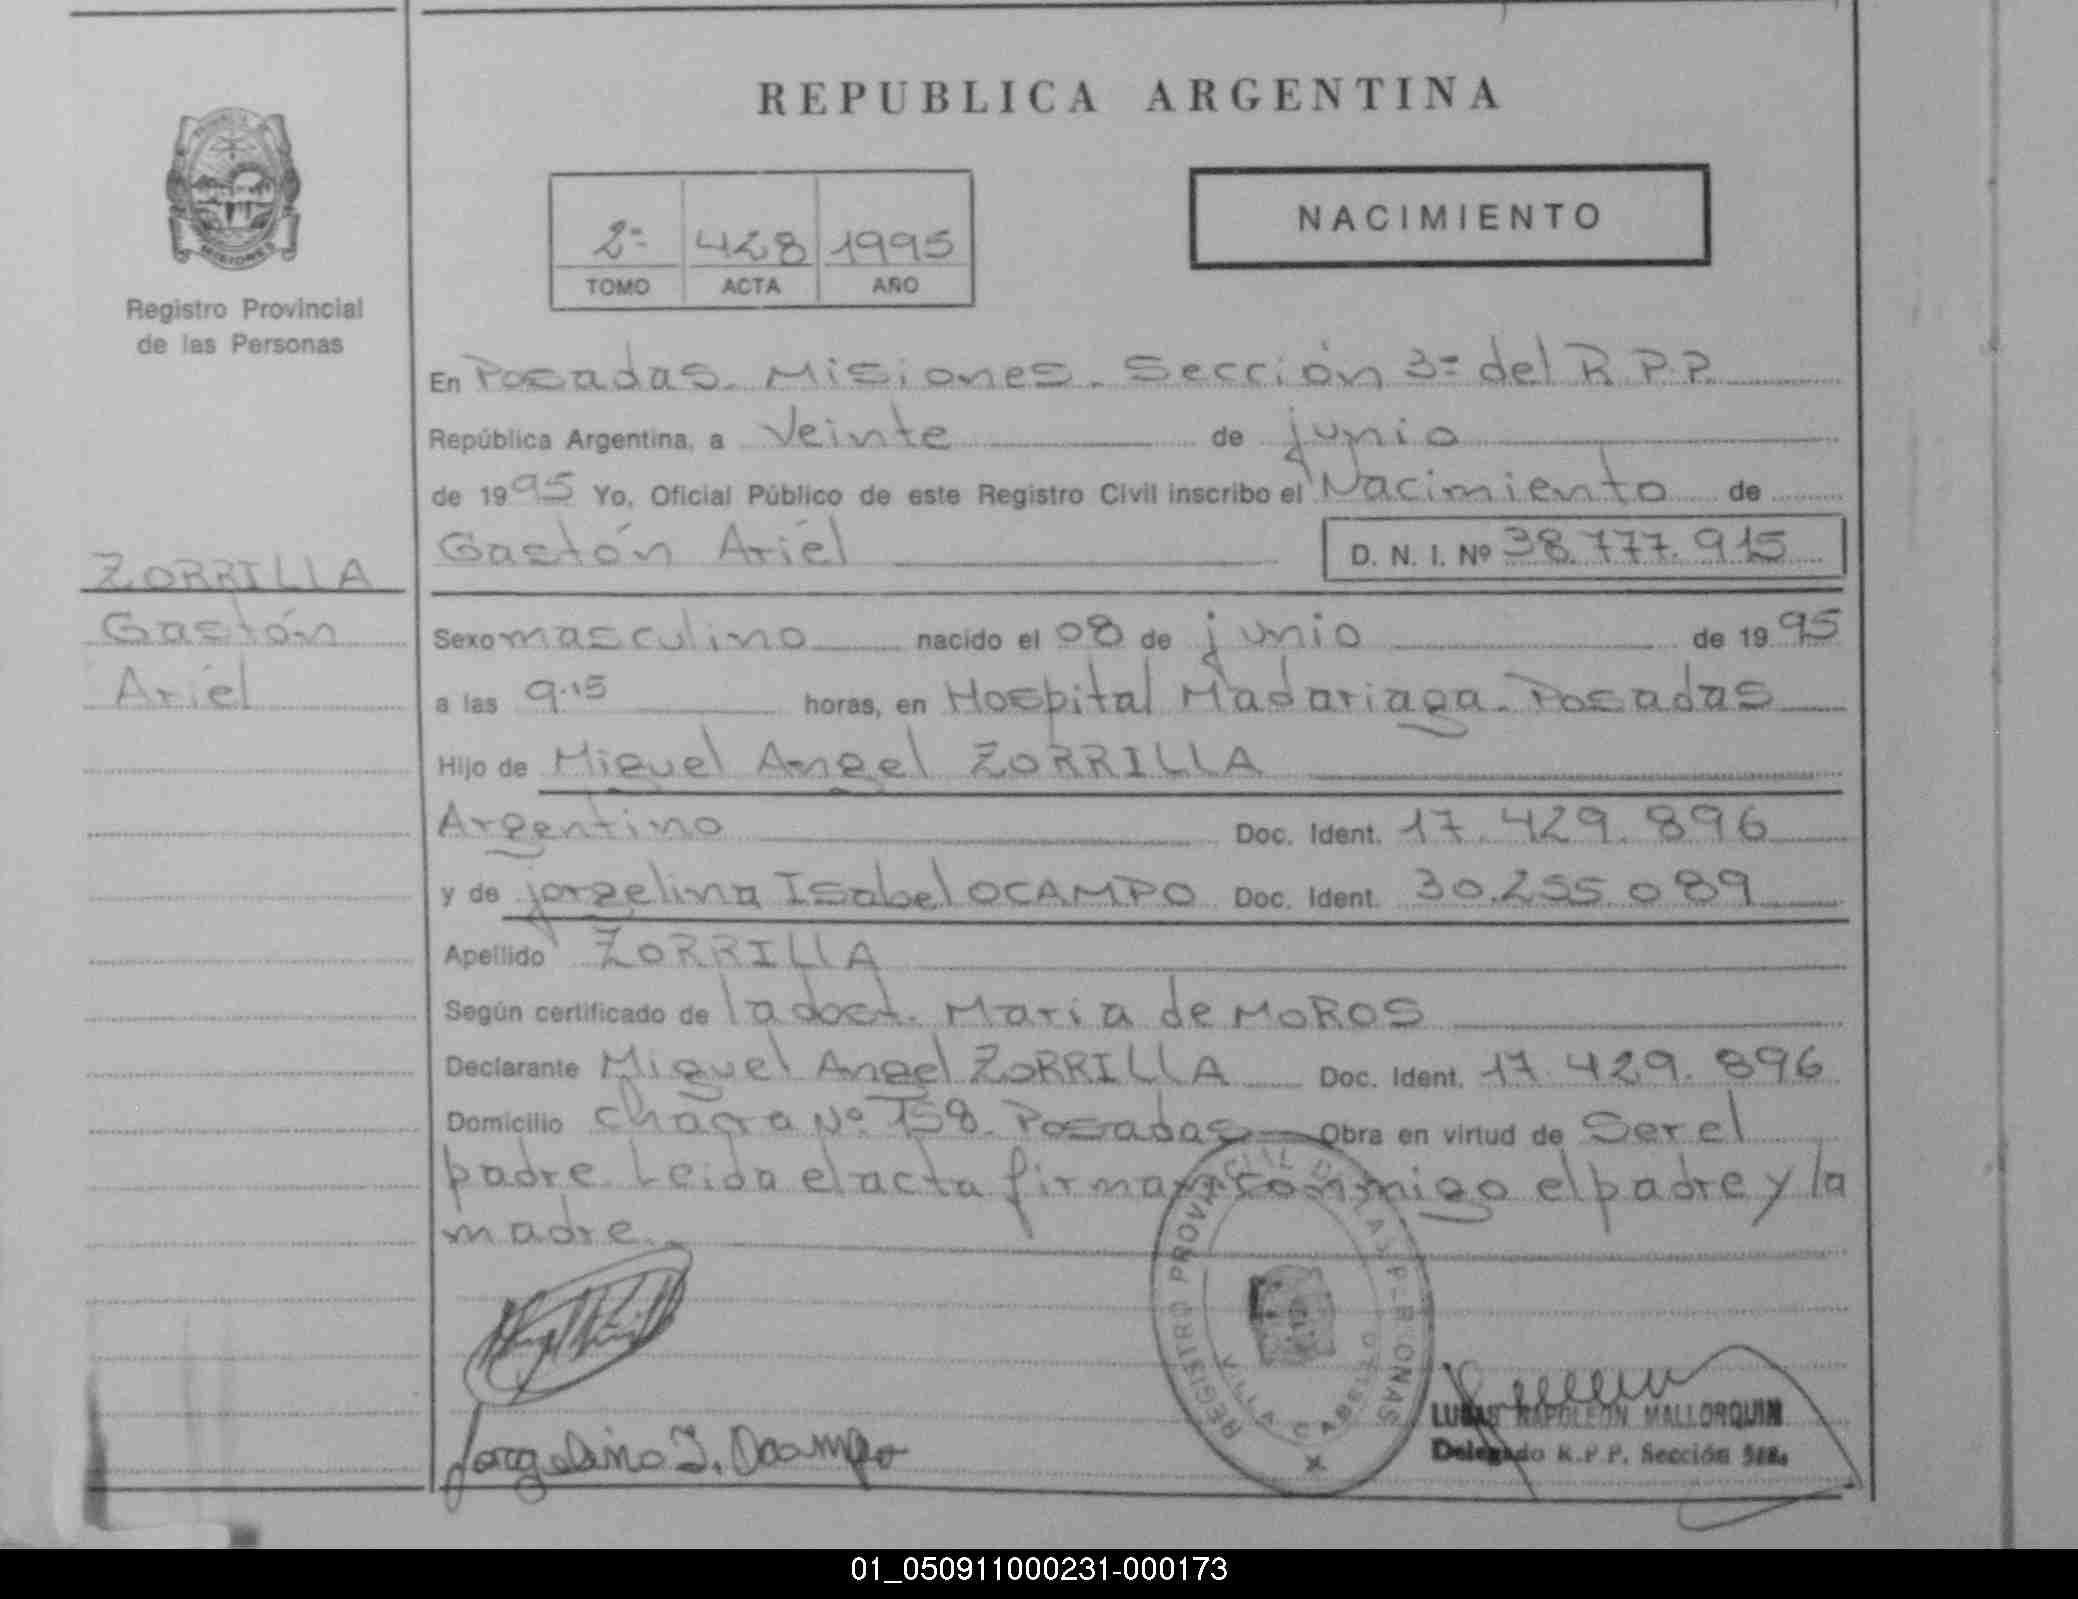 REPUBLICA ARGENTINA
NACIMIENTO
2º 428 1995
TOMO ACTA AÑO
MISIONES
Registro Provincial
de las Personas
ZORRILLA
Gastón
Ariel
En Posadas. Misiones. Sección 3º del R.P.P.
República Argentina, a Veinte de junio
de 1995 Yo, Oficial Público de este Registro Civil inscribo el Nacimiento de
Gastón Ariel D. N. I. Nº 38.777.915
Sexo masculino nacido el 08 de junio de 1995
a las 9.15 horas, en Hospital Madariaga. Posadas
Hijo de Miguel Angel ZORRILLA
Argentino Doc. Ident. 17.429.896
y de jorgelina Isabel OCAMPO Doc. Ident. 30.255.089
Apellido ZORRILLA
Según certificado de la doct. Maria de MOROS
Declarante Miguel Angel ZORRILLA Doc. Ident. 17.429.896
Domicilio chacra Nº 158. Posadas Obra en virtud de Ser el
padre. Leida el acta firman conmigo el padre y la
madre.
REGISTRO PROVINCIAL DE LAS PERSONAS
VILLA CABELLO
Jorgelina I. Ocampo
LUCAS NAPOLEON MALLORQUIN
Delegado R.P.P. Sección 3ra.
01_050911000231-000173